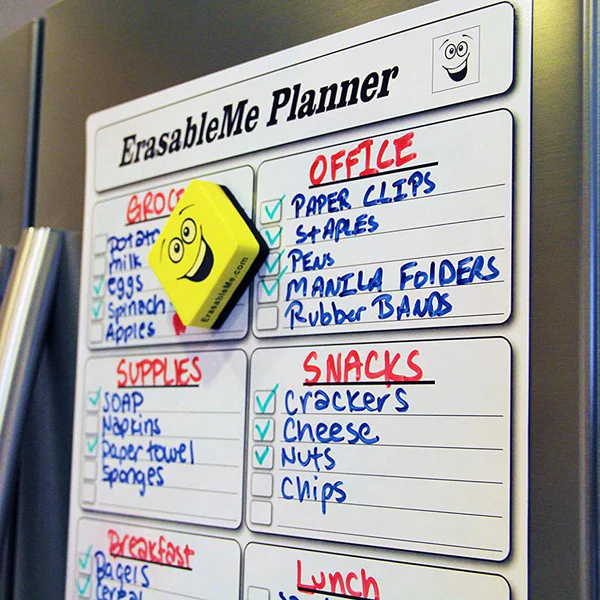 ErasableMe Planner
GROC
Potat
milk
eggs
Spinach
Apples
ErasableMe.com
OFFICE
PAPER CLIPS
StAPLES
PENs
MANILA FOlDERS
Rubber BANDS
SUPPLIES
SOAP
Napkins
Paper towel
Sponges
SNACKS
Crackers
Cheese
Nuts
Chips
Breakfast
Bagels
Cereal
Lunch